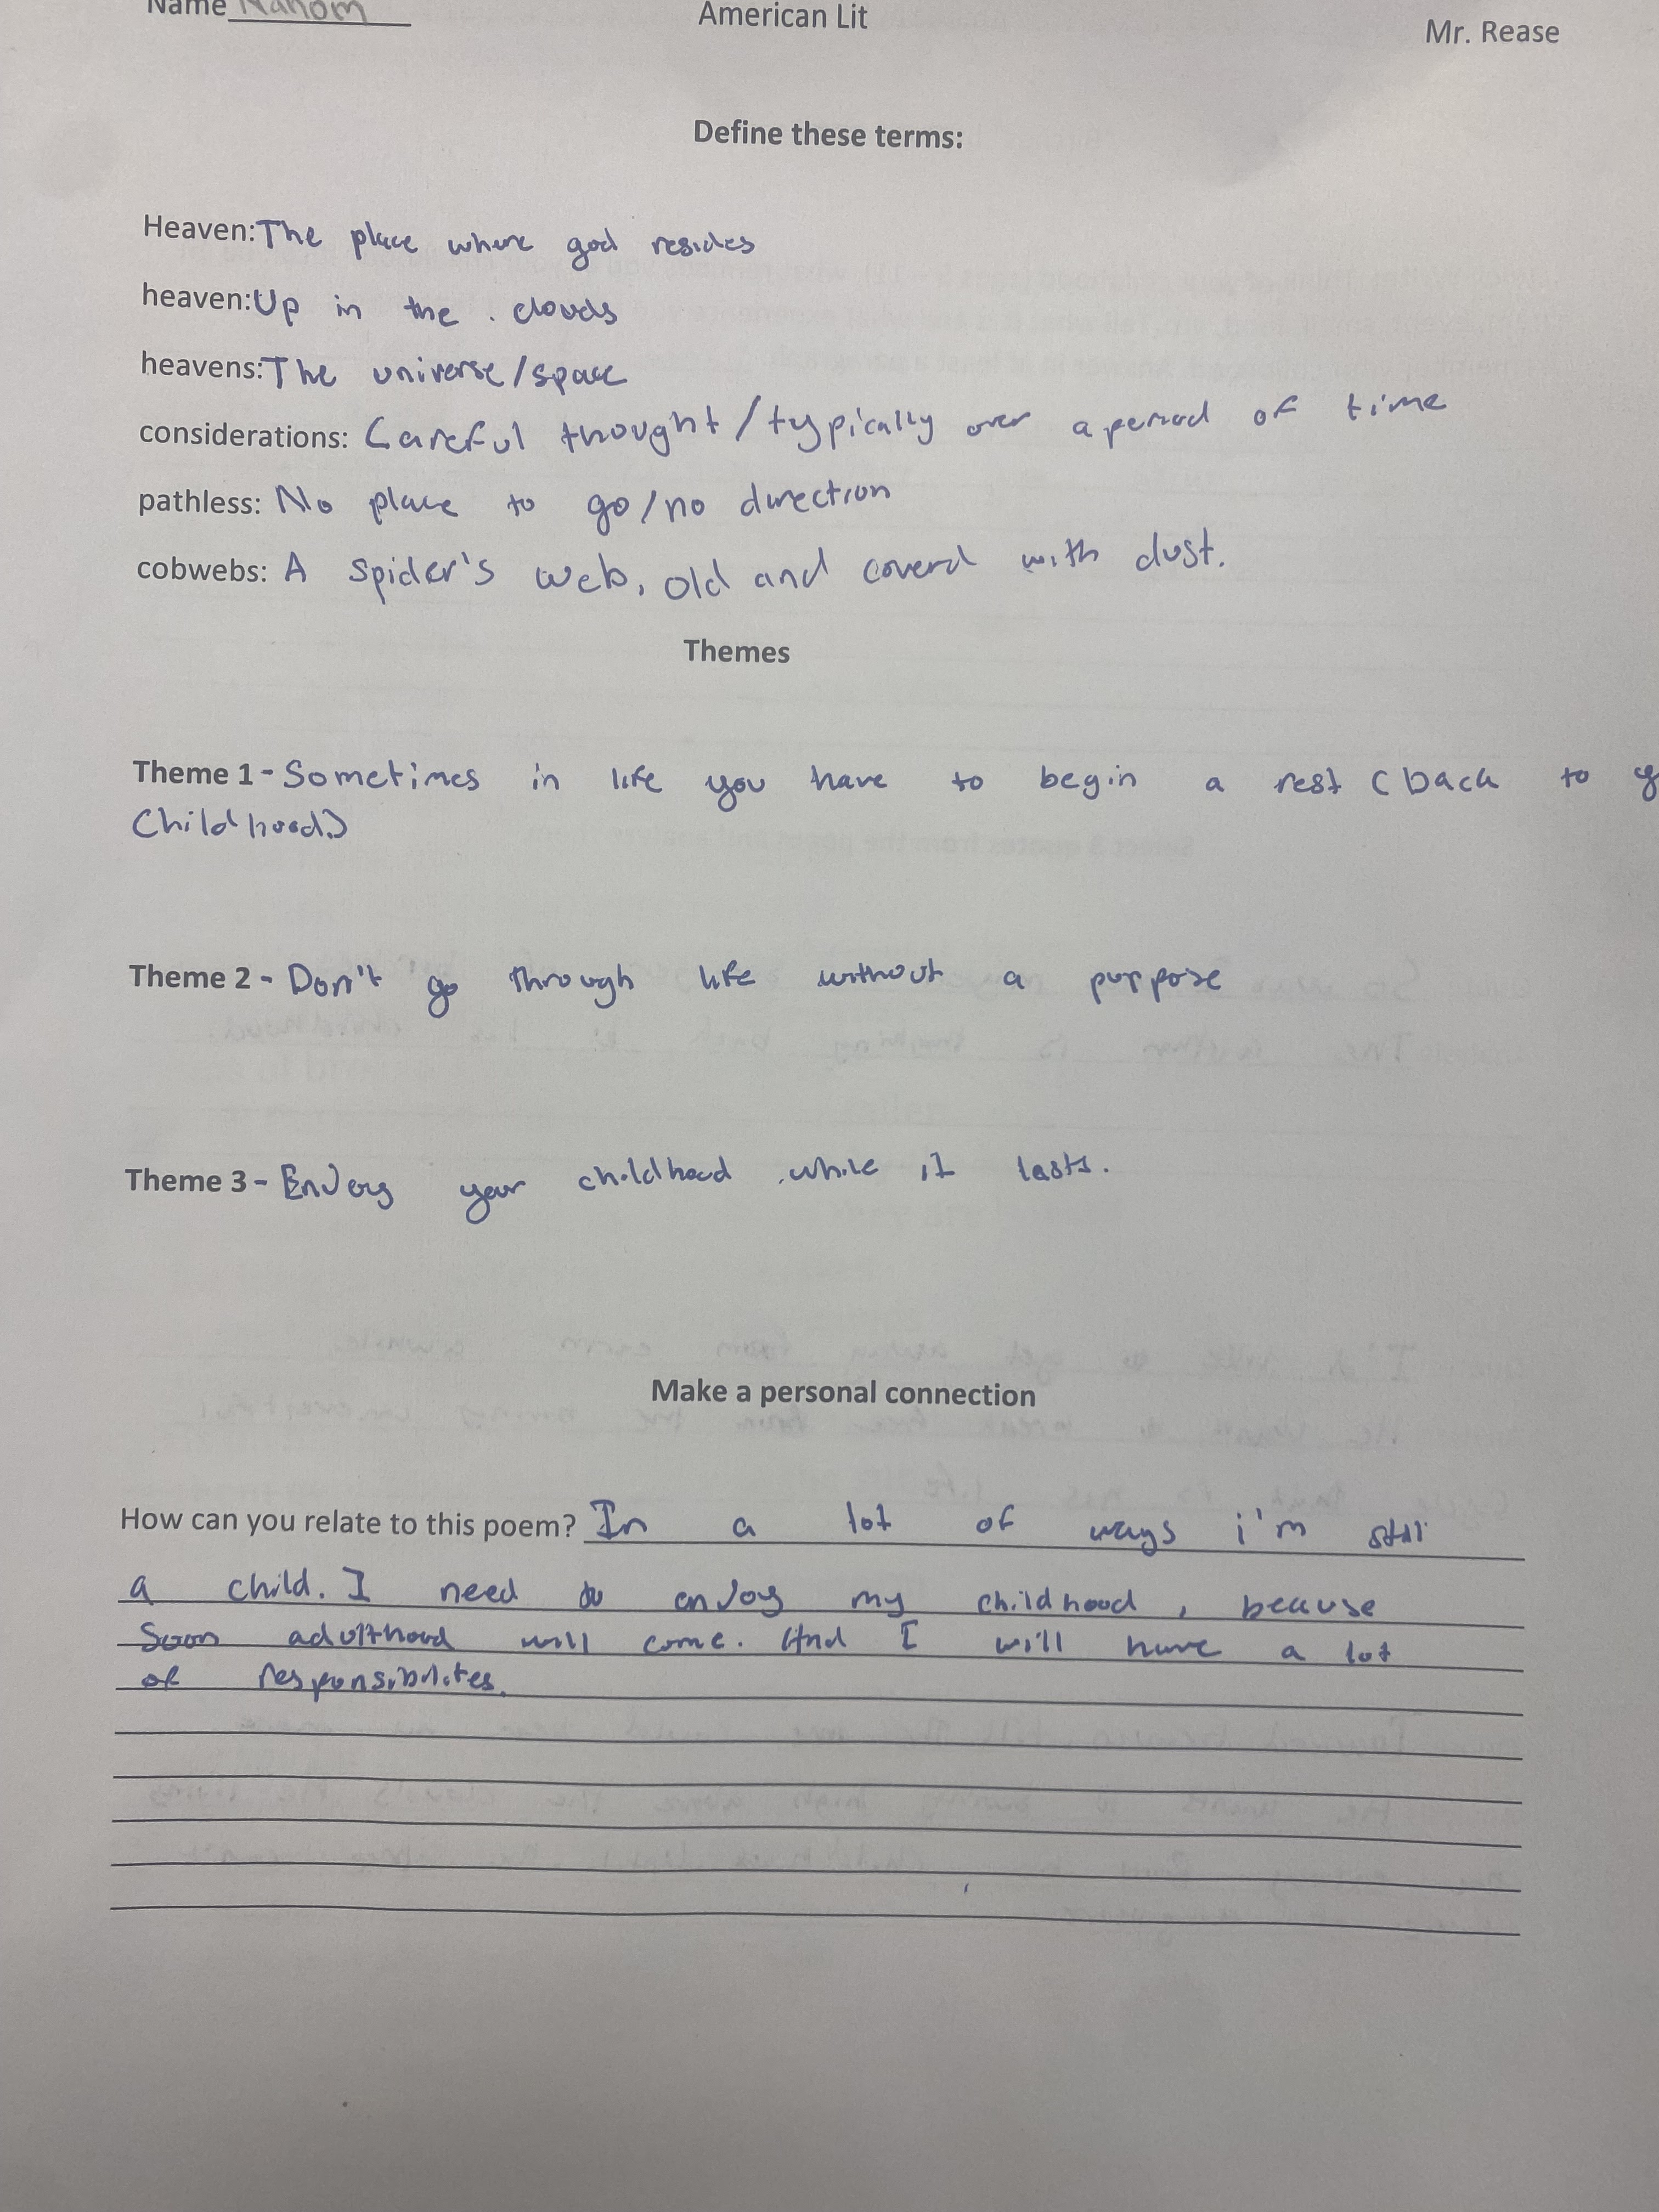 Name Nahom American Lit Mr. Rease
Define these terms:
Heaven: The place where god resides
heaven: Up in the . clouds
heavens: The universe/space
considerations: Careful thought/typically over a period of time
pathless: No place to go/no direction
cobwebs: A spider's web, old and coverd with dust.
Themes
Theme 1 - Sometimes in life you have to begin a rest (back to
Childhood.)
Theme 2 - Don't go through life without a purpose
Theme 3 - Enjoy your childhood while it lasts.
Make a personal connection
How can you relate to this poem? In a lot of ways i'm still
a child. I need to enjoy my childhood, because
Soon adulthood will come. And I will have a lot
of responsibilites.